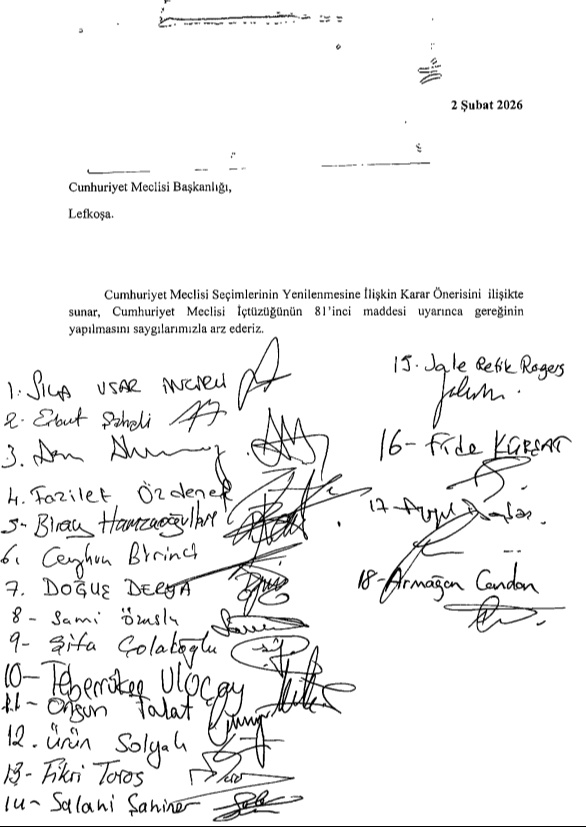 2 Şubat 2026
Cunhuriyet Meclisi Başkanlığı,
Lefkoşa.
Cumhuriyet Meclisi Seçimlerinin Yenilenmesine İlişkin Karar Önerisini ilişikte
sunar, Cumhuriyet Meclisi İçtüzüğünün 81'inci maddesi uyarınca gereğinin
yapılmasını saygılarımızla arz ederiz.
1. SILA USAR İNCİRLİ
2. Erkut Şahali
3.
4. Fazilet Özdenefe
5- Biray Hamzaoğulları
6. Ceyhun Birinci
7. DOĞUŞ DERYA
8 - Sami Özuslu
9- Şifa Çolakoğlu
10- Teberrüken ULUÇAY
11- Ongun Talat
12. Ürün Solyalı
13- Fikri Toros
14- Salahi Şahiner
15. Jale Refik Rogers
16- Fide KÜRŞAT
17-
18- Armağan Candan